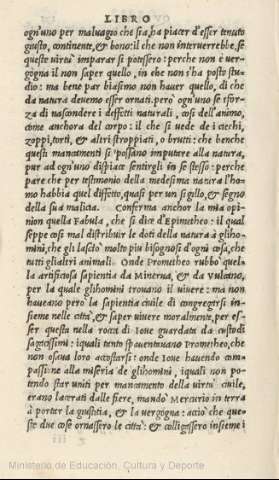 LIBRO
ogn'uno per maluagio che sia, ha piacer d'esser tenuto
giusto, continente, & bono: il che non interuerrebbe, se
queste uirtù imparar si potessero: perche non è uer-
gogna il non saper quello, in che non s'ha posto stu-
dio: ma bene par biasimo non hauer quello, di che
da natura deuemo esser ornati. però ogn'uno se sfor-
za di nascondere i deffetti naturali, cosi dell'animo,
come anchora del corpo: il che si uede de i ciechi,
zoppi, torti, & altri stroppiati, o brutti: che benche
questi mancamenti si possano imputare alla natura,
pur ad ogn'uno dispiace sentirgli in se stesso: perche
pare che per testimonio della medesima natura l'ho-
mo habbia quel diffetto, quasi per un sigillo, & segno
della sua malicia. Conferma anchor la mia opi-
nion quella Fabula, che si dice d'Epimetheo: il qual
seppe cosi mal distribuir le doti della natura à gliho-
mini, che gli lasciò molto piu bisognosi d'ogni cosa, che
tutti glialtri animali. Onde Prometheo rubbò quel-
la artificiosa sapientia da Minerua, & da Vulcano,
per la quale glihomini trouano il uiuere: ma non
haueano però la sapientia ciuile di congregarsi in-
sieme nelle città, & saper uiuere moralmente, per es-
ser questa nella rocca di Ioue guardata da custodi
sagacissimi: iquali tanto spauentauano Prometheo, che
non osaua loro accostarsi: onde Ioue hauendo com-
passione alla miseria de glihomini, iquali non po-
tendo star uniti per mancamento della uirtù ciuile,
erano lacerati dalle fiere, mandò Mercurio in terra
à portar la giustitia, & la uergogna: acciò che que-
ste due cose ornassero le città: & colligassero insieme i
Ministerio de Educación, Cultura y Deporte